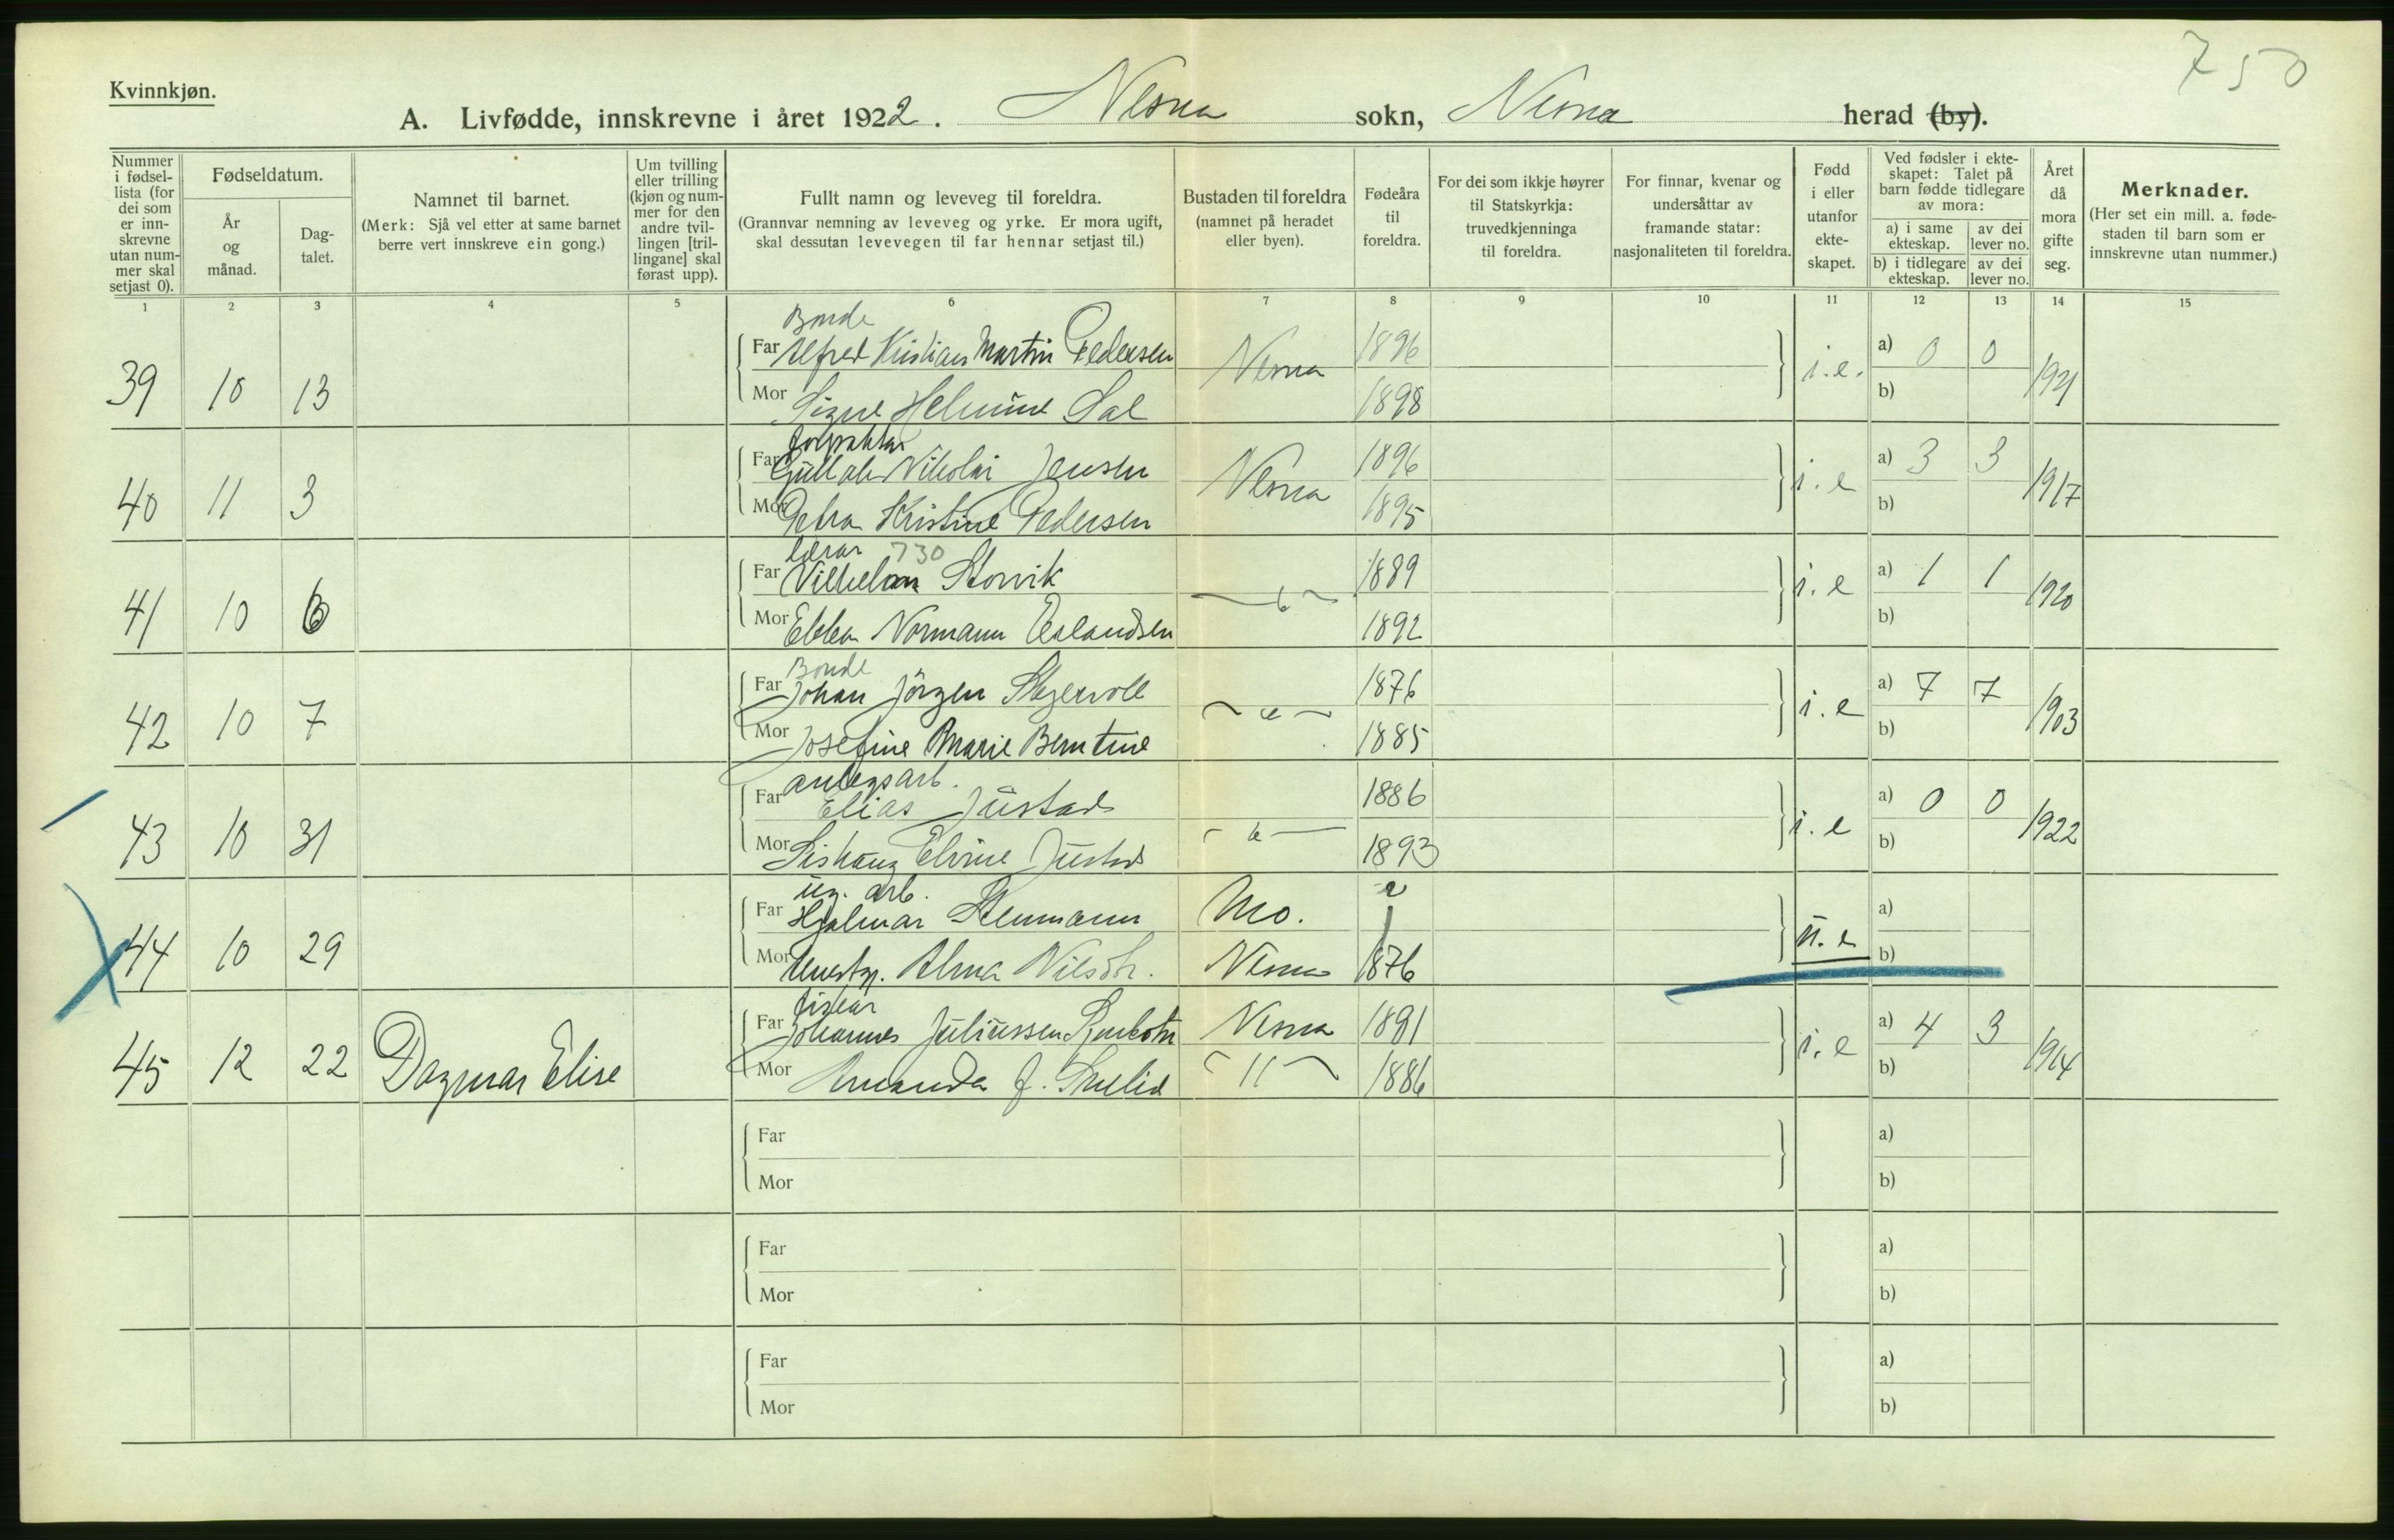 750
Kvinnkjøn.
A. Livfødde, innskrevne i året 1922. Nesna sokn, Nesna herad (by).
Nummer i fødsel-lista (for dei som er inn-skrevne utan num-mer skal setjast 0).
Fødseldatum.
År og månad.
Dag-talet.
Namnet til barnet.
(Merk: Sjå vel etter at same barnet berre vert innskreve ein gong.)
Um tvilling eller trilling (kjøn og num-mer for den andre tvil-lingen [tril-lingane] skal førast upp).
Fullt namn og leveveg til foreldra.
(Grannvar nemning av leveveg og yrke. Er mora ugift, skal dessutan levevegen til far hennar setjast til.)
Bustaden til foreldra (namnet på heradet eller byen).
Fødeåra til foreldra.
For dei som ikkje høyrer til Statskyrkja: truvedkjenninga til foreldra.
For finnar, kvenar og undersåttar av framande statar: nasjonaliteten til foreldra.
Fødd i eller utanfor ekte-skapet.
Ved fødsler i ekte-skapet: Talet på barn fødde tidlegare av mora:
a) i same ekteskap.
av dei lever no.
b) i tidlegare ekteskap.
av dei lever no.
Året då mora gifte seg.
Merknader.
(Her set ein mill. a. føde-staden til barn som er innskrevne utan nummer.)
1 2 3 4 5 6 7 8 9 10 11 12 13 14 15
Bonde
Far Alfred Kristian Martin Pedersen 1896 a) 0 0
39 10 13 Nesna i.e. 1921
Mor Signe Helmine Sal 1898 b)
Far Nikolai Jensen 1896 a) 3 3
40 11 3 Nesna i.e 1917
Mor Petra Kristine Pedersen 1895 b)
lærar 730
Far Vilhelm Storvik 1889 a) 1 1
41 10 6 i.e 1920
Mor Ebba Normann 1892 b)
Bonde
Far Johan Jörgen 1876 a) 7 7
42 10 7 i.e 1903
Mor Josefine Marie Berntine 1885 b)
anlegsarb.
Far Elias Justad 1886 a) 0 0
43 10 31 i.e 1922
Mor Elvine Justad 1893 b)
ug. arb.
Far Hjalmar Stenmann Mo. a)
44 10 29 u.e
Mor Alma Nilsdtr. Nesna 1876 b)
fiskar
Far Johannes Juliussen Nesna 1891 a) 4 3
45 12 22 Dagmar Elise i.e 1914
Mor Amanda J. 1886 b)
Far a)
Mor b)
Far a)
Mor b)
Far a)
Mor b)